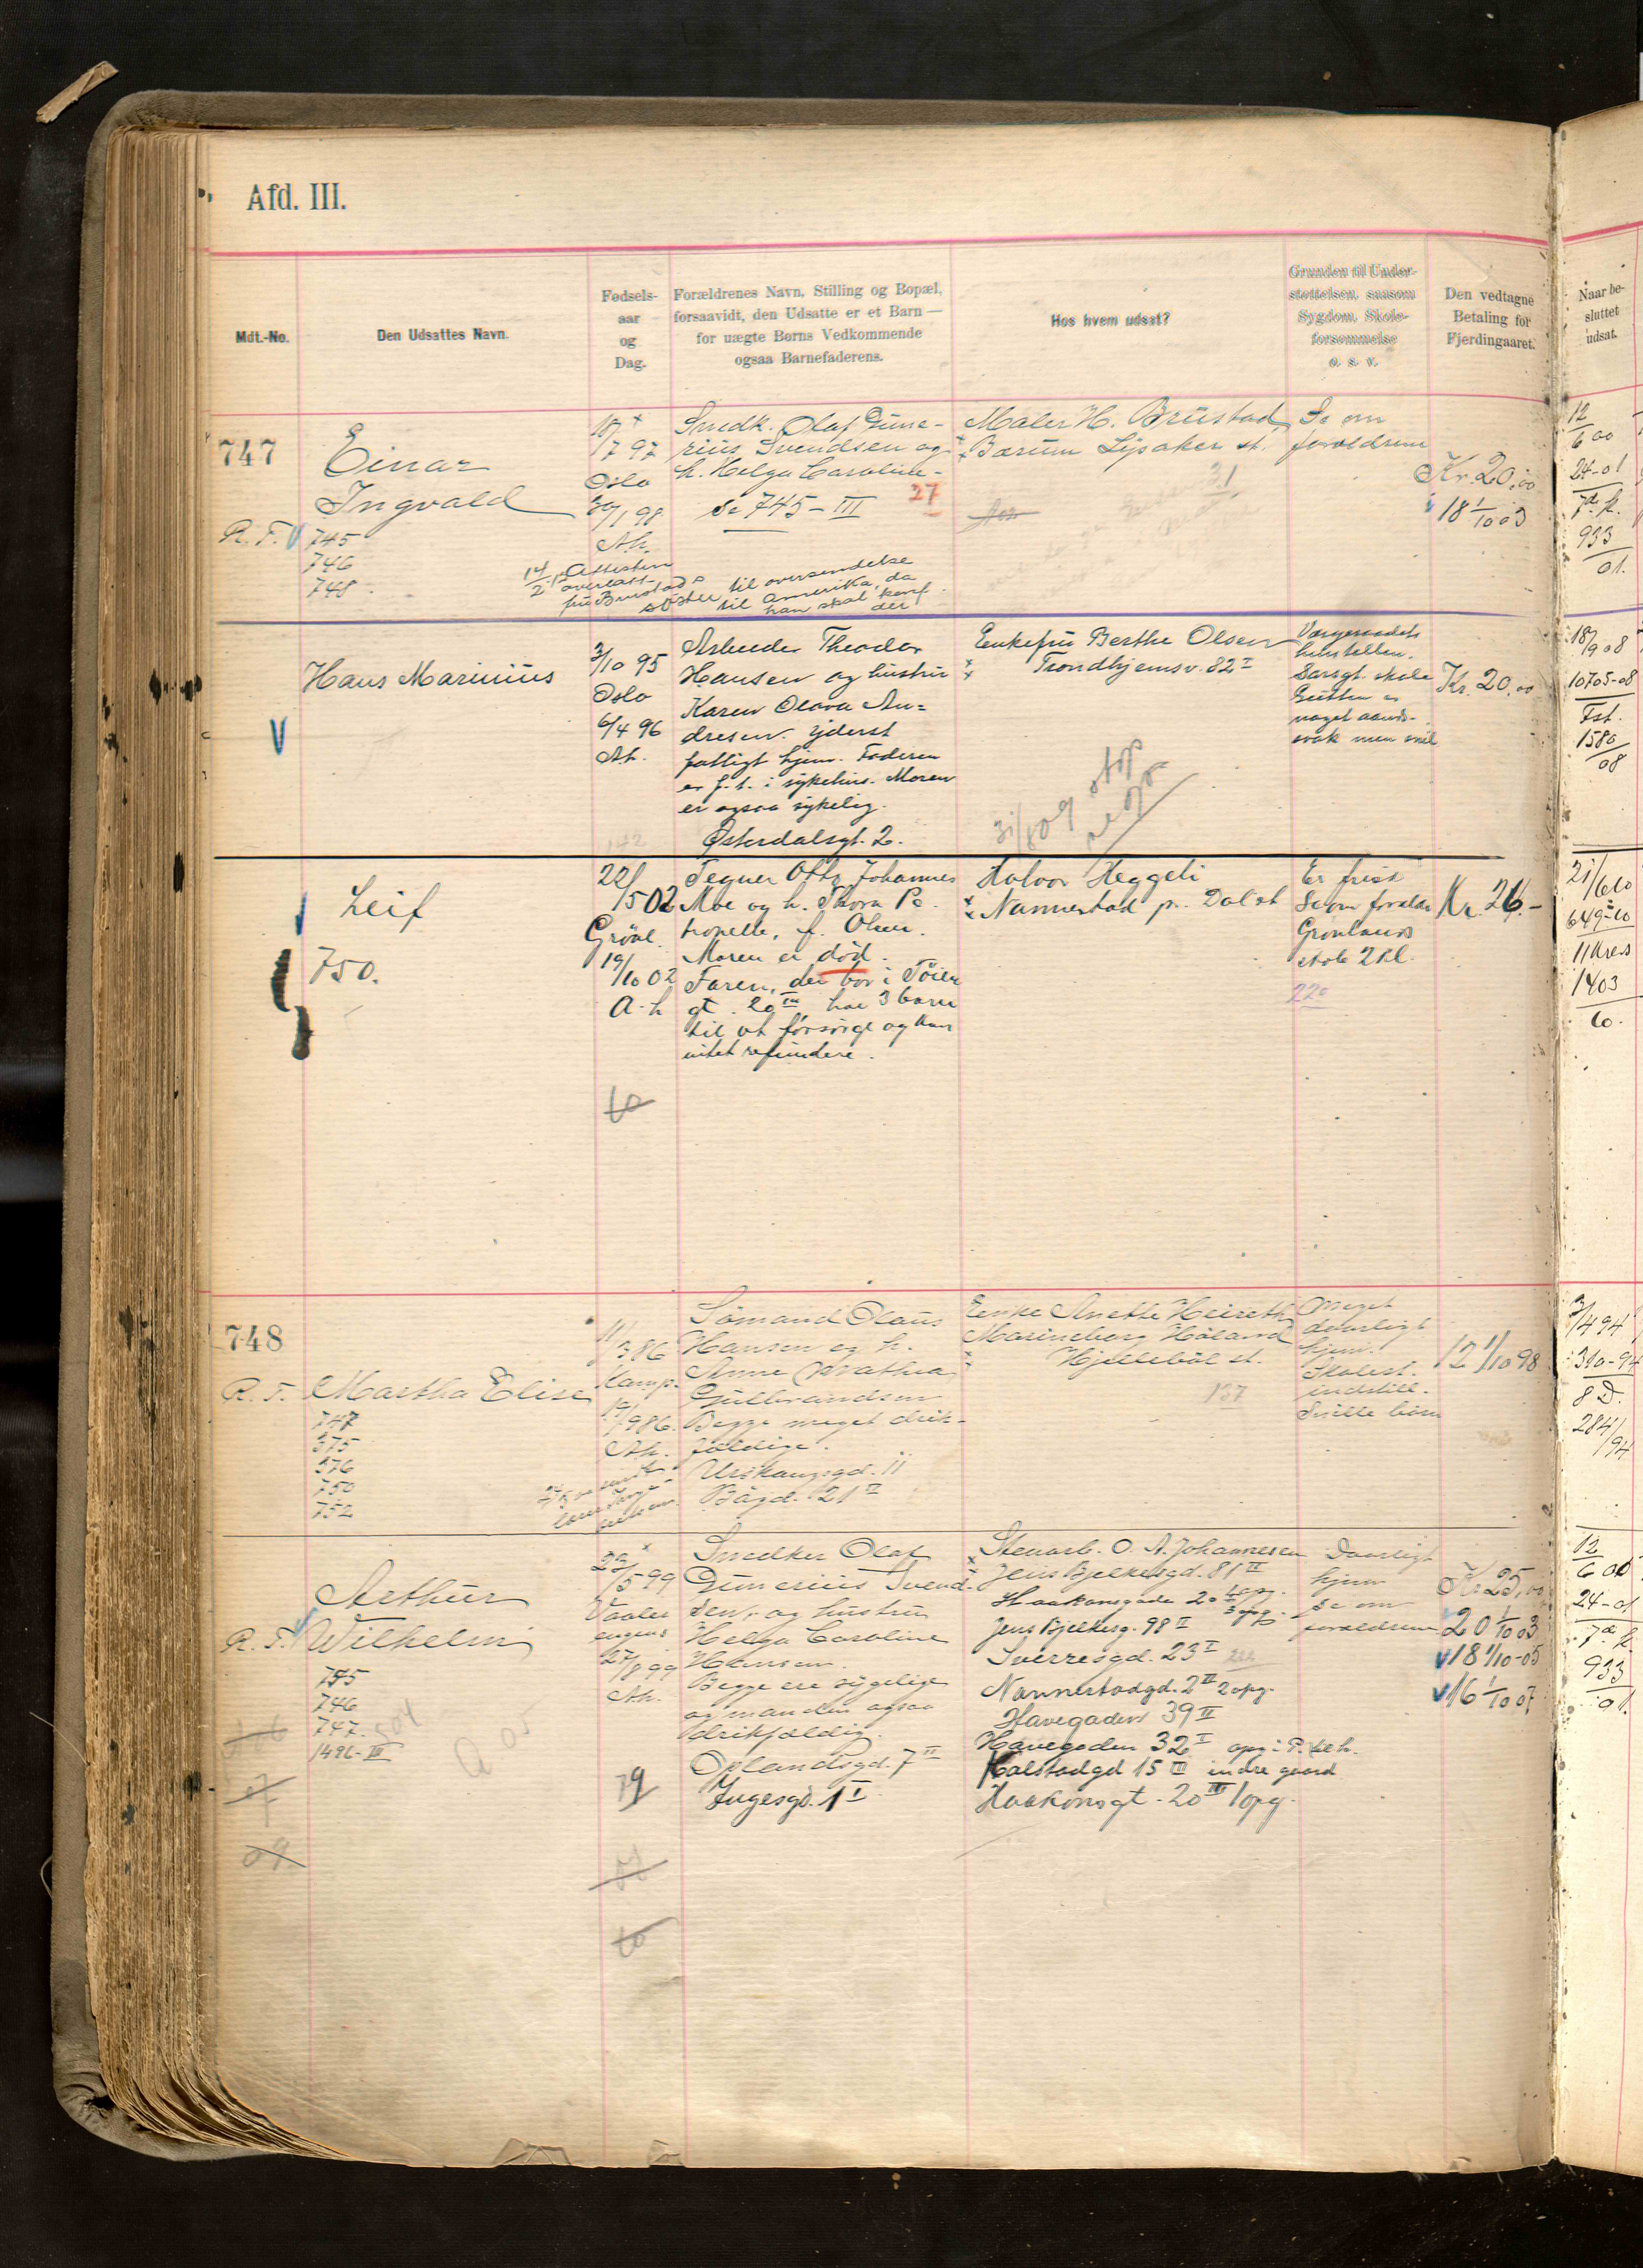 Afd. III.
Mdt.-No.
Den Udsattes Navn.
Fødsels-
aar
og
Dag.
Forældrenes Navn, Stilling og Bopæl,
forsaavidt, den Udsatte er et Barn —
for uægte Børns Vedkommende
ogsaa Barnefaderens.
Hos hvem udsat?
Grunden til Under-
støttelsen, saasom
Sygdom, Skole-
forsømmelse
o. s. v.
Den vedtagne
Betaling for
Fjerdingaaret.
Naar be-
sluttet
udsat.
747
Einar
Ingvald
R. F.
745
746
748
18/7 97
Oslo
30/1 98
Ah.
Snedk. Olaf Gune-
rius Svendsen og
h. Helga Caroline
Se 745 - III
27
14/2 Attesten
overlatt
fru Brustads
søster til oversendelse
til Amerika, da
han skal konf.
der
Maler H. Brustad
Bærum Lysaker st.
31
Se om
forældrene
Kr. 20,00
18 1/10 03
12/6 00
24-01
7de k.
933/01.
Hans Marinius
3/10 95
Oslo
6/4 96
Ah.
Arbeider Theodor
Hansen og hustru
Karen Olava An=
dresen. yderst
fattigt hjem. Faderen
er f. t. i sykehus. Moren
er ogsaa sykelig.
Østerdalsgt. 2.
Enkefru Berthe Olsen
Trondhjemsv. 82 I
31/8 09 stop
Vergeraadets
Sarsgt. skole
Gutten er
noget aands-
svak men snil
Kr. 20,00
18/9 08
10705-08
Fst.
1580/08
Leif
750.
22/5 02
Grönl.
19/10 02
A. h
Tegner Otto Johannes
Moe og h. Thora Pe-
tronelle, f. Olsen.
Moren er død.
Faren, der bor i Töien
gt. 20 III har 3 barn
til at forsörge og kan
intet refundere.
10
Halvor Heggeli
Nannestad pr. Dal st
Er frisk
Se om foreldr
Grønlands
skole 2 kl.
220
Kr. 26.-
21/6 10
649-10
11 Kreds
1403/10.
748
R. F. Martha Elise
747
375
376
750
752
11/3 86
Kamp.
12/9 86.
Ah.
Sömand Olaus
Hansen og h.
Anne Mathea
Gulbrandsen
Begge meget drik-
fældige.
Urskougsgd. 11
Bögd. 21 II
Enke Anette Heireth
Marineborg Höland
Hjellebøl st.
137
Meget
daarligt
hjem.
Skolest.
indstill.
Snille børn
12 1/10 98
3/4 94
310-94
8 D.
284/94
Arthur
R. F. Wilhelm
745
746
747.
1496-III
22/5 99
Vaaler
engens
27/8 99
Ah.
Snedker Olaf
Gunerius Svend-
sen. og hustru
Helga Caroline
Hansen.
Begge ere sygelige
og manden ogsaa
drikfældig.
Oplandsgd. 7 II
Ingesgd. 1 I
Stenarb. O. A. Johannesen
Jens Bjelkesgd. 81 II
Haakonsgade 20
Jens Bjelkesg. 98 II 3 opg.
Sverresgd. 23 I
Nannestadgd. 2 II 2 opg.
Havegaden 39 II
Havegaden 32 I
Kalstadgd 15 III indre gaard
Haakonsgt. 20 III 1 opg.
Daarligt
hjem
Se om
forældrene
Kr. 25,00
20 1/10 03
18 1/10-05
16 1/10 07
12/6 00
24-01
7de k.
933/01.
09
10